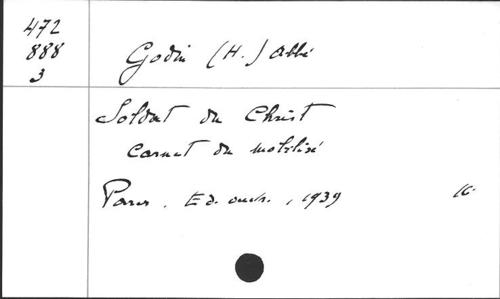 472
888
3
Godin (H.) abbé
Soldat du Christ
Carnet du mobilisé
Paris. Ed. ouvr., 1939 16°